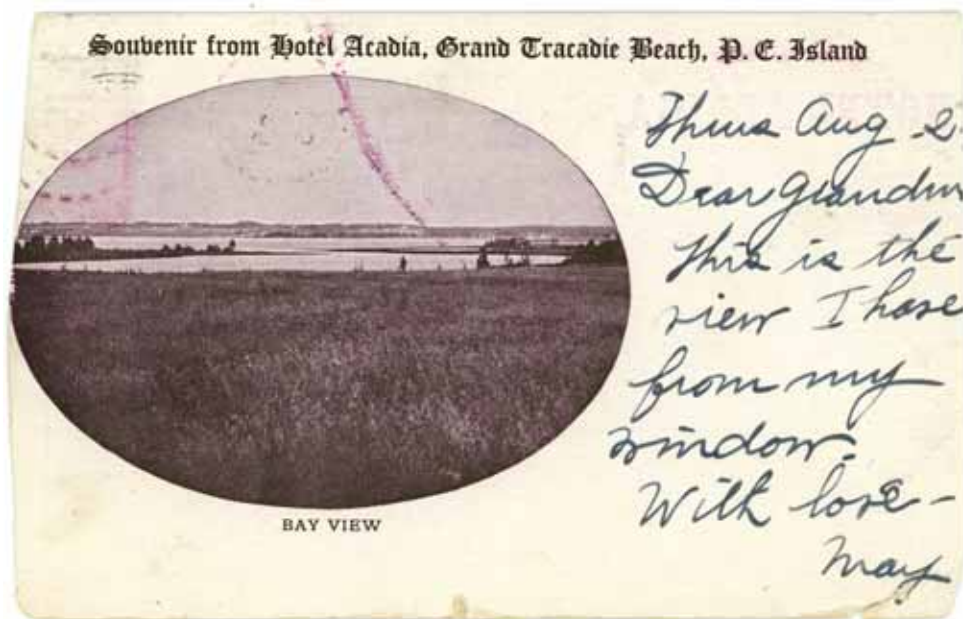 Souvenir from Hotel Acadia, Grand Tracadie Beach, P. E. Island
Thurs Aug 2
Dear Grandm
This is the
view I have
from my
window.
With love -
May
BAY VIEW